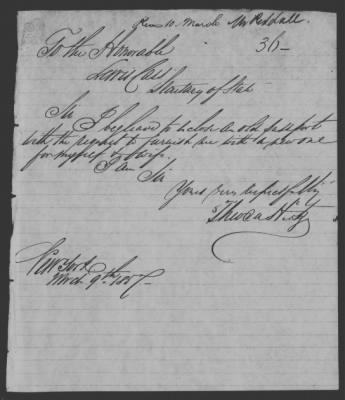 Rec 10. March
36-
To the Honorable
Lewis Cass
Secretary of State
Sir I beg leave to inclose an old passport
with the request to furnish me with a new one
for myself & wife.
I am Sir
Yours very respectfully
New York
March 9th 1857